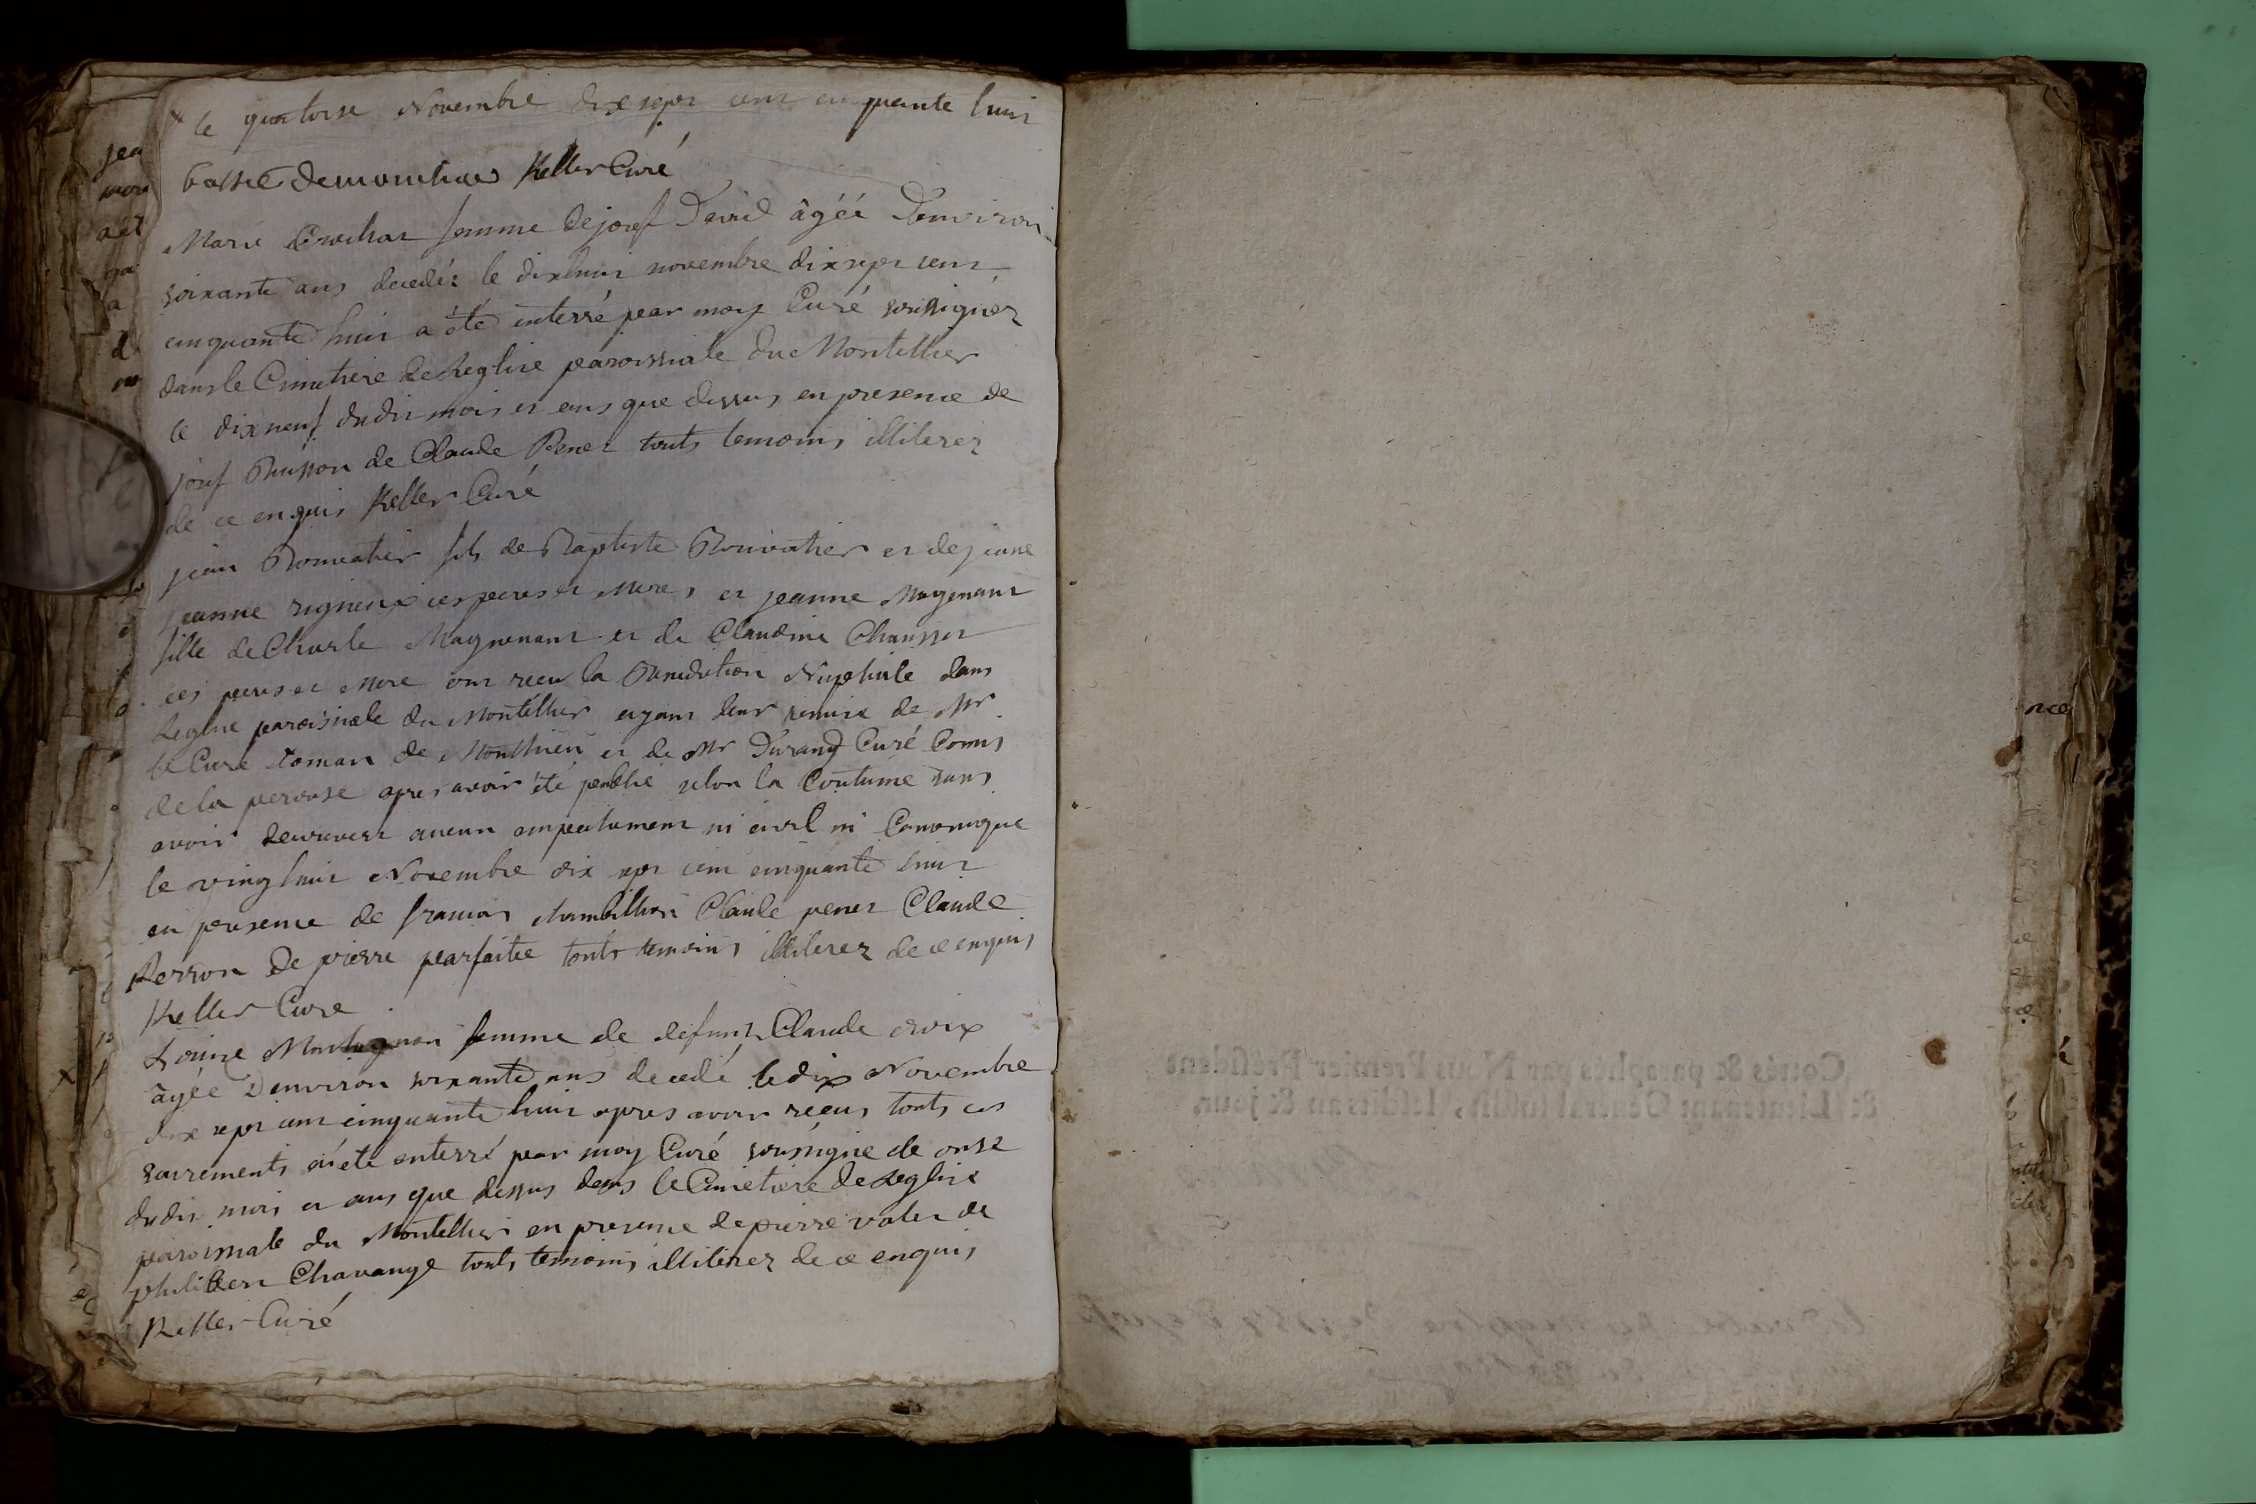 le quatorse Novembre dix sept cent cinquante huit
Keller Curé
Marie femme de josef David âgéé Denviron
soixante ans decedéz le dixhuit novembre dix sept cent
cinquante huit a été enterré par moy Curé soussignéz
dans le Cimetiere de Leglise paroissiale du Montellier
le dix neuf dudit mois et ans que dessus en presence de
josef Buisson de Claude Penet touts temoins illiterez
de ce enquis Keller Curé
jean fils de Baptiste et de jeane
jeanne rigneux ces peres et Mere, et jeanne Magnenant
fille de Charle Magnenant et de Claudine Chausset
ces peres et Mere ont receu la Benediction Nuptiale dans
Leglise paroissiale du Montellier ayant leur remise de Mr
le Curé de Monthieu et de Mr Durand Curé Comis
de la perouse apres avoir été publié selon la Coutume sans
avoir decouvert aucun empechement ni civil ni Canonique
le vinghuit Novembre dix sept cent cinquante huit
en presence de francois Claude penet Claude
Perron De pierre parfaite touts temoins illiterez de ce enquis
Keller Cure
Louise femme de defunt Claude croix
âgée Denviron soixante ans decedé le dix Novembre
dix sept cent cinquante huit apres avoir receus touts ces
sacrements a été enterré par moy Curé soussigné de onse
dudit mois et ans que dessus dans le Cimetiere de Leglise
paroissiale du Montellier en presence de pierre valet de
philibert Chavange touts temoins illiterez de ce enquis
Keller Curé
Cottés & paraphés par Nous Premier Président
& Lieutenant Général susdit, lesdits an & jour.